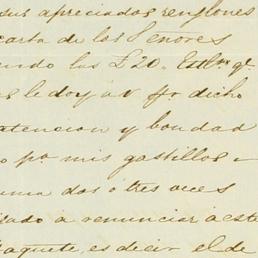 sus apreciados renglones
carta de los Señores
ndo las £20. Estlˢ qᵉ
le doy a V pʳ dicho
atencion y bondad
pᵃ mis gastillos
una dos o tres veces
a renunciar a este
Paquete, es decir el de